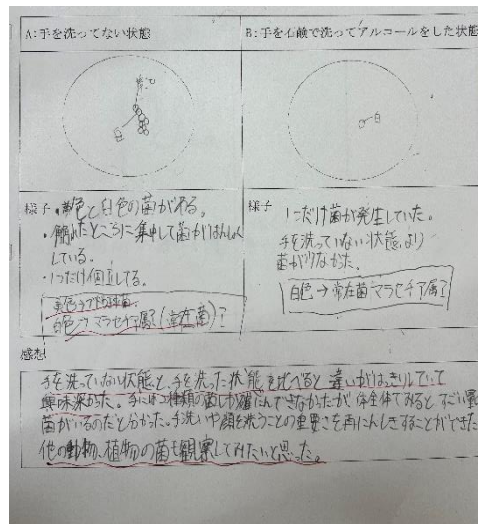 A:手を洗ってない状態
B:手を石鹸で洗ってアルコールをした状態
黄色
白
白
様子
・黄色と白色の菌がある。
・触れたところに集中して菌がはんしょく
している。
・1つだけ個立してる。
黄色→ブドウ球菌
白色→マラセチア属?(常在菌)?
様子
1つだけ菌が発生していた。
手を洗っていない状態より
菌が少なかった。
白色→常在菌マラセチア属?
感想
手を洗っていない状態と、手を洗った状態を比べると違いがはっきりしていて
興味深かった。手に2種類の菌しか確にんできなかったが体全体でみるとすごい量
菌がいるのだと分かった。手洗いや顔を洗うことの重要さを再にんしきすることができた
他の動物、植物の菌も観察してみたいと思った。